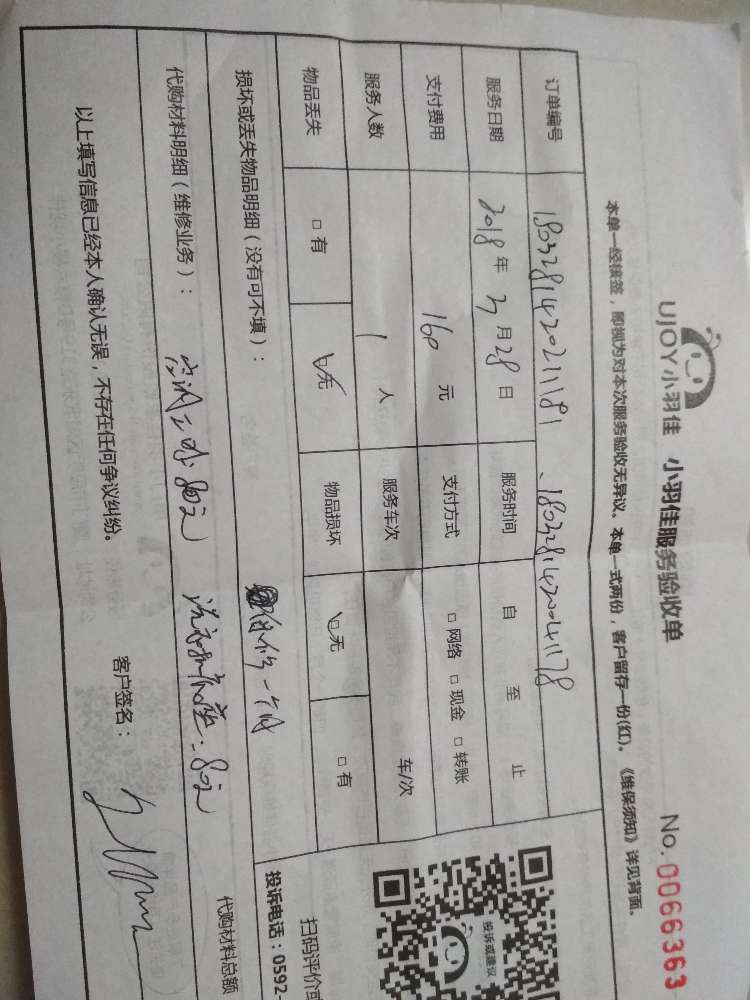 UJOY小羽佳 小羽佳服务验收单 No.0066363
本单一经接签，即视为对本次服务验收无异议。本单一式两份，客户留存一份(红)。《维保须知》详见背面。
订单编号 180328142021181、180328142004178
服务日期 2018年3月28日 服务时间 自 至 止
支付费用 160元 支付方式 □网络 □现金 □转账
服务人数 1人 服务车次 车/次
物品丢失 □有 □无 物品损坏 □无 □有
损坏或丢失物品明细（没有可不填）： 保修一个月
代购材料明细（维修业务）： 代购材料总额
以上填写信息已经本人确认无误，不存在任何争议纠纷。
客户签名：
投诉或建议
扫码评价或
投诉电话：0592-